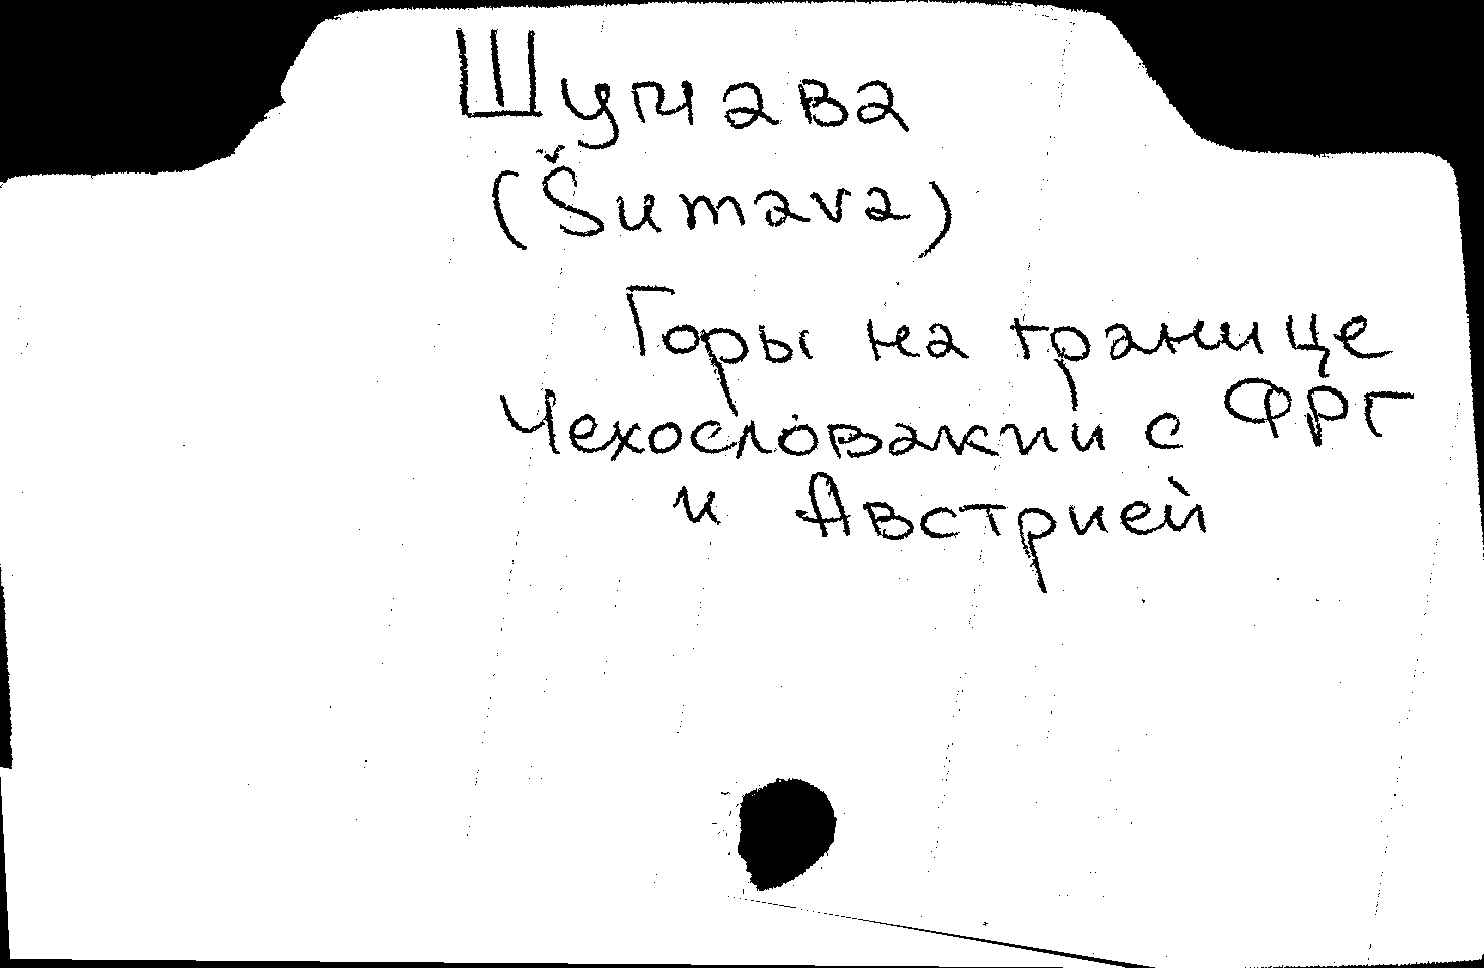 Шумава
(Šumava)
Горы на границе
Чехословакии с ФРГ
и Австрией